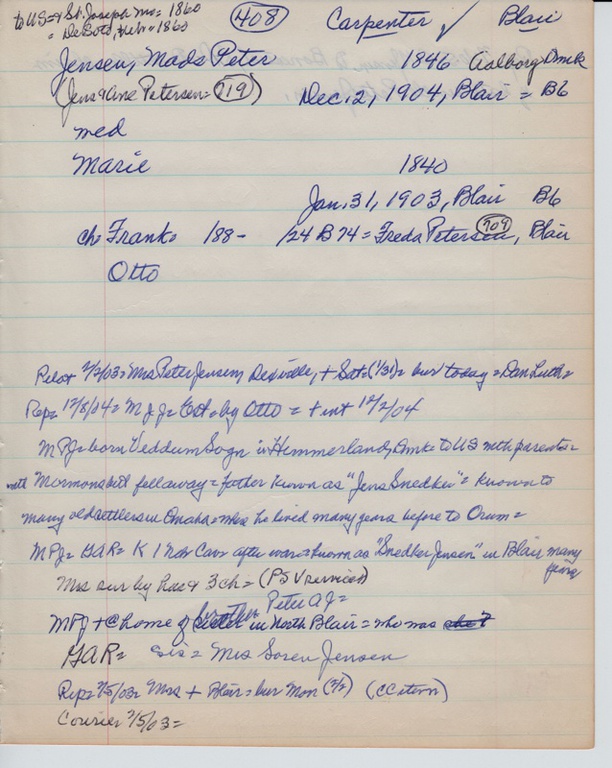 to US = St. Joseph Mo = 1860 (408) Carpenter ✓ Blair
= DeSoto, Neb = 1860
Jensen, Mads Peter 1846 Aalborg Dmk
(Jens & Ane Petersen = 719) Dec. 2, 1904, Blair = B6
med
Marie 1840
Jan. 31, 1903, Blair B6
ch = Frank = 188- /24 B 74 = Freda Petersen (709), Blair
Otto
Pilot 2/2/03 = Mrs Peter Jensen, , + Sat = (1/31) = bur today = Dan Luth =
Rep = 12/8/04 = M P J = Est = by Otto = + int 12/2/04
M P J = born Veddum Sogn in Himmerland, Dmk = to US with parents =
with Mormons but fell away = father known as "Jens Snedker" = known to
many old settlers in Omaha = where he lived many years before to Orum =
M P J = GAR = K 1 Neb Cav = after war = known as "Snedker Jensen" in Blair many years
Mrs sur by hus & 3 ch = (PS V services)
M P J + @ home of brother in North Blair = who was
Peter A J =
GAR = sis = Mrs Soren Jensen
Rep = 2/5/03 = Mrs + Blair = bur Mon (2/2) (CC item)
Courier 2/5/03 =